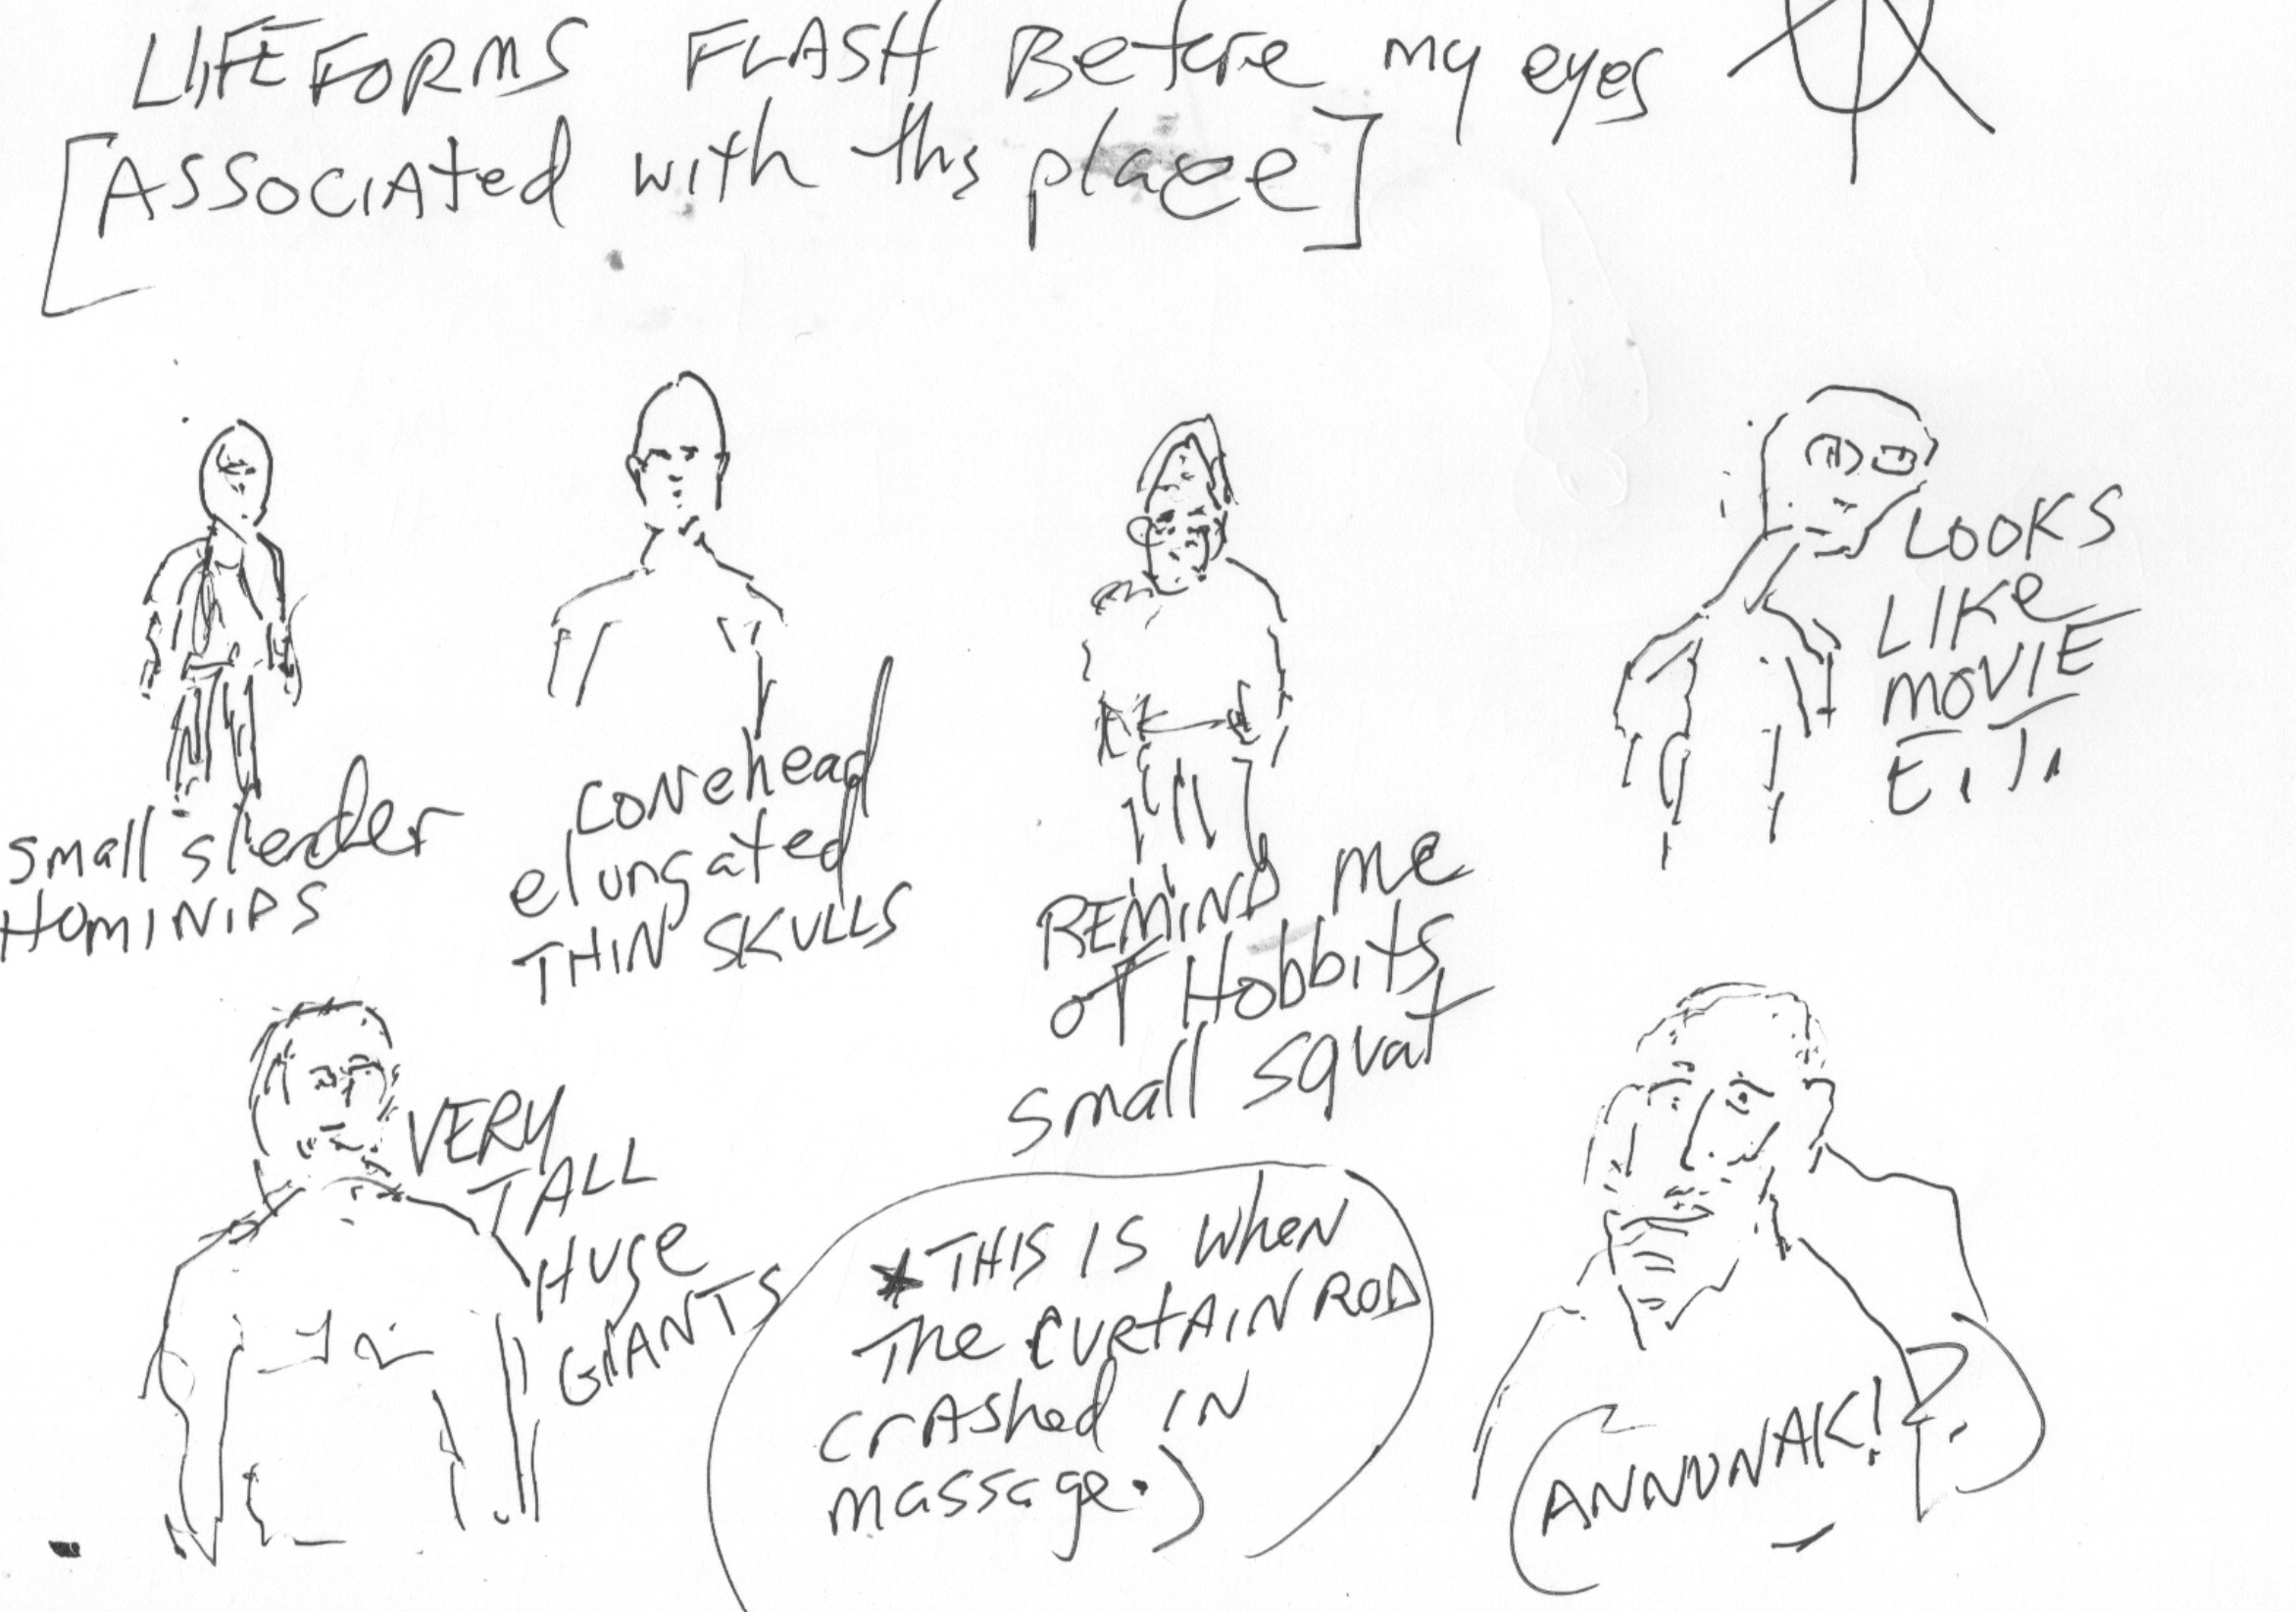 LIFE FORMS FLASH Before my eyes
[Associated with ths place]
small slender
HOMINIDS
CONehead
elungated
THIN SKULLS
REMIND me
of Hobbits
small squat
LOOKS
LIKe
MOVIE
E.T.
VERY
TALL
HUge
GIANTS
*THIS IS wheN
The CURtAIN ROD
crAshed IN
massage.)
(ANNUNAK!?)